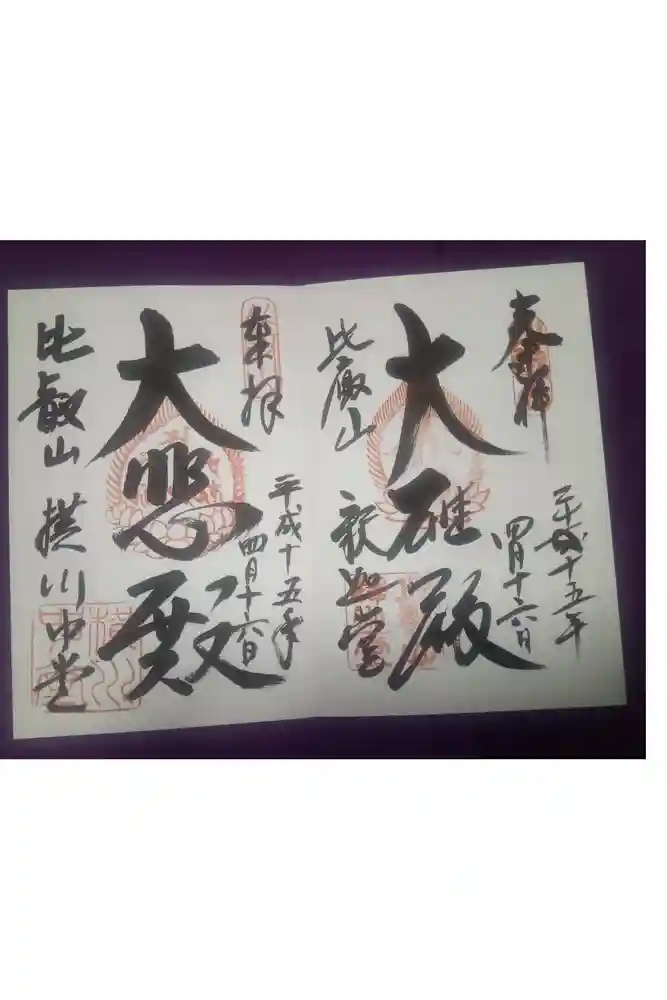 奉拝
平成十五年
四月十六日
大雄殿
比叡山
釈迦堂
奉拝
平成十五年
四月十六日
大悲殿
比叡山 横川中堂